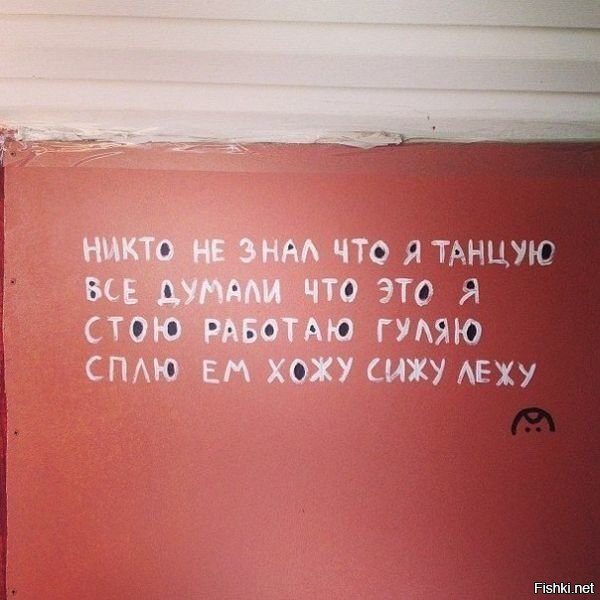 НИКТО НЕ ЗНАЛ ЧТО Я ТАНЦУЮ
ВСЕ ДУМАЛИ ЧТО ЭТО Я
СТОЮ РАБОТАЮ ГУЛЯЮ
СПЛЮ ЕМ ХОЖУ СИЖУ ЛЕЖУ
Fishki.net